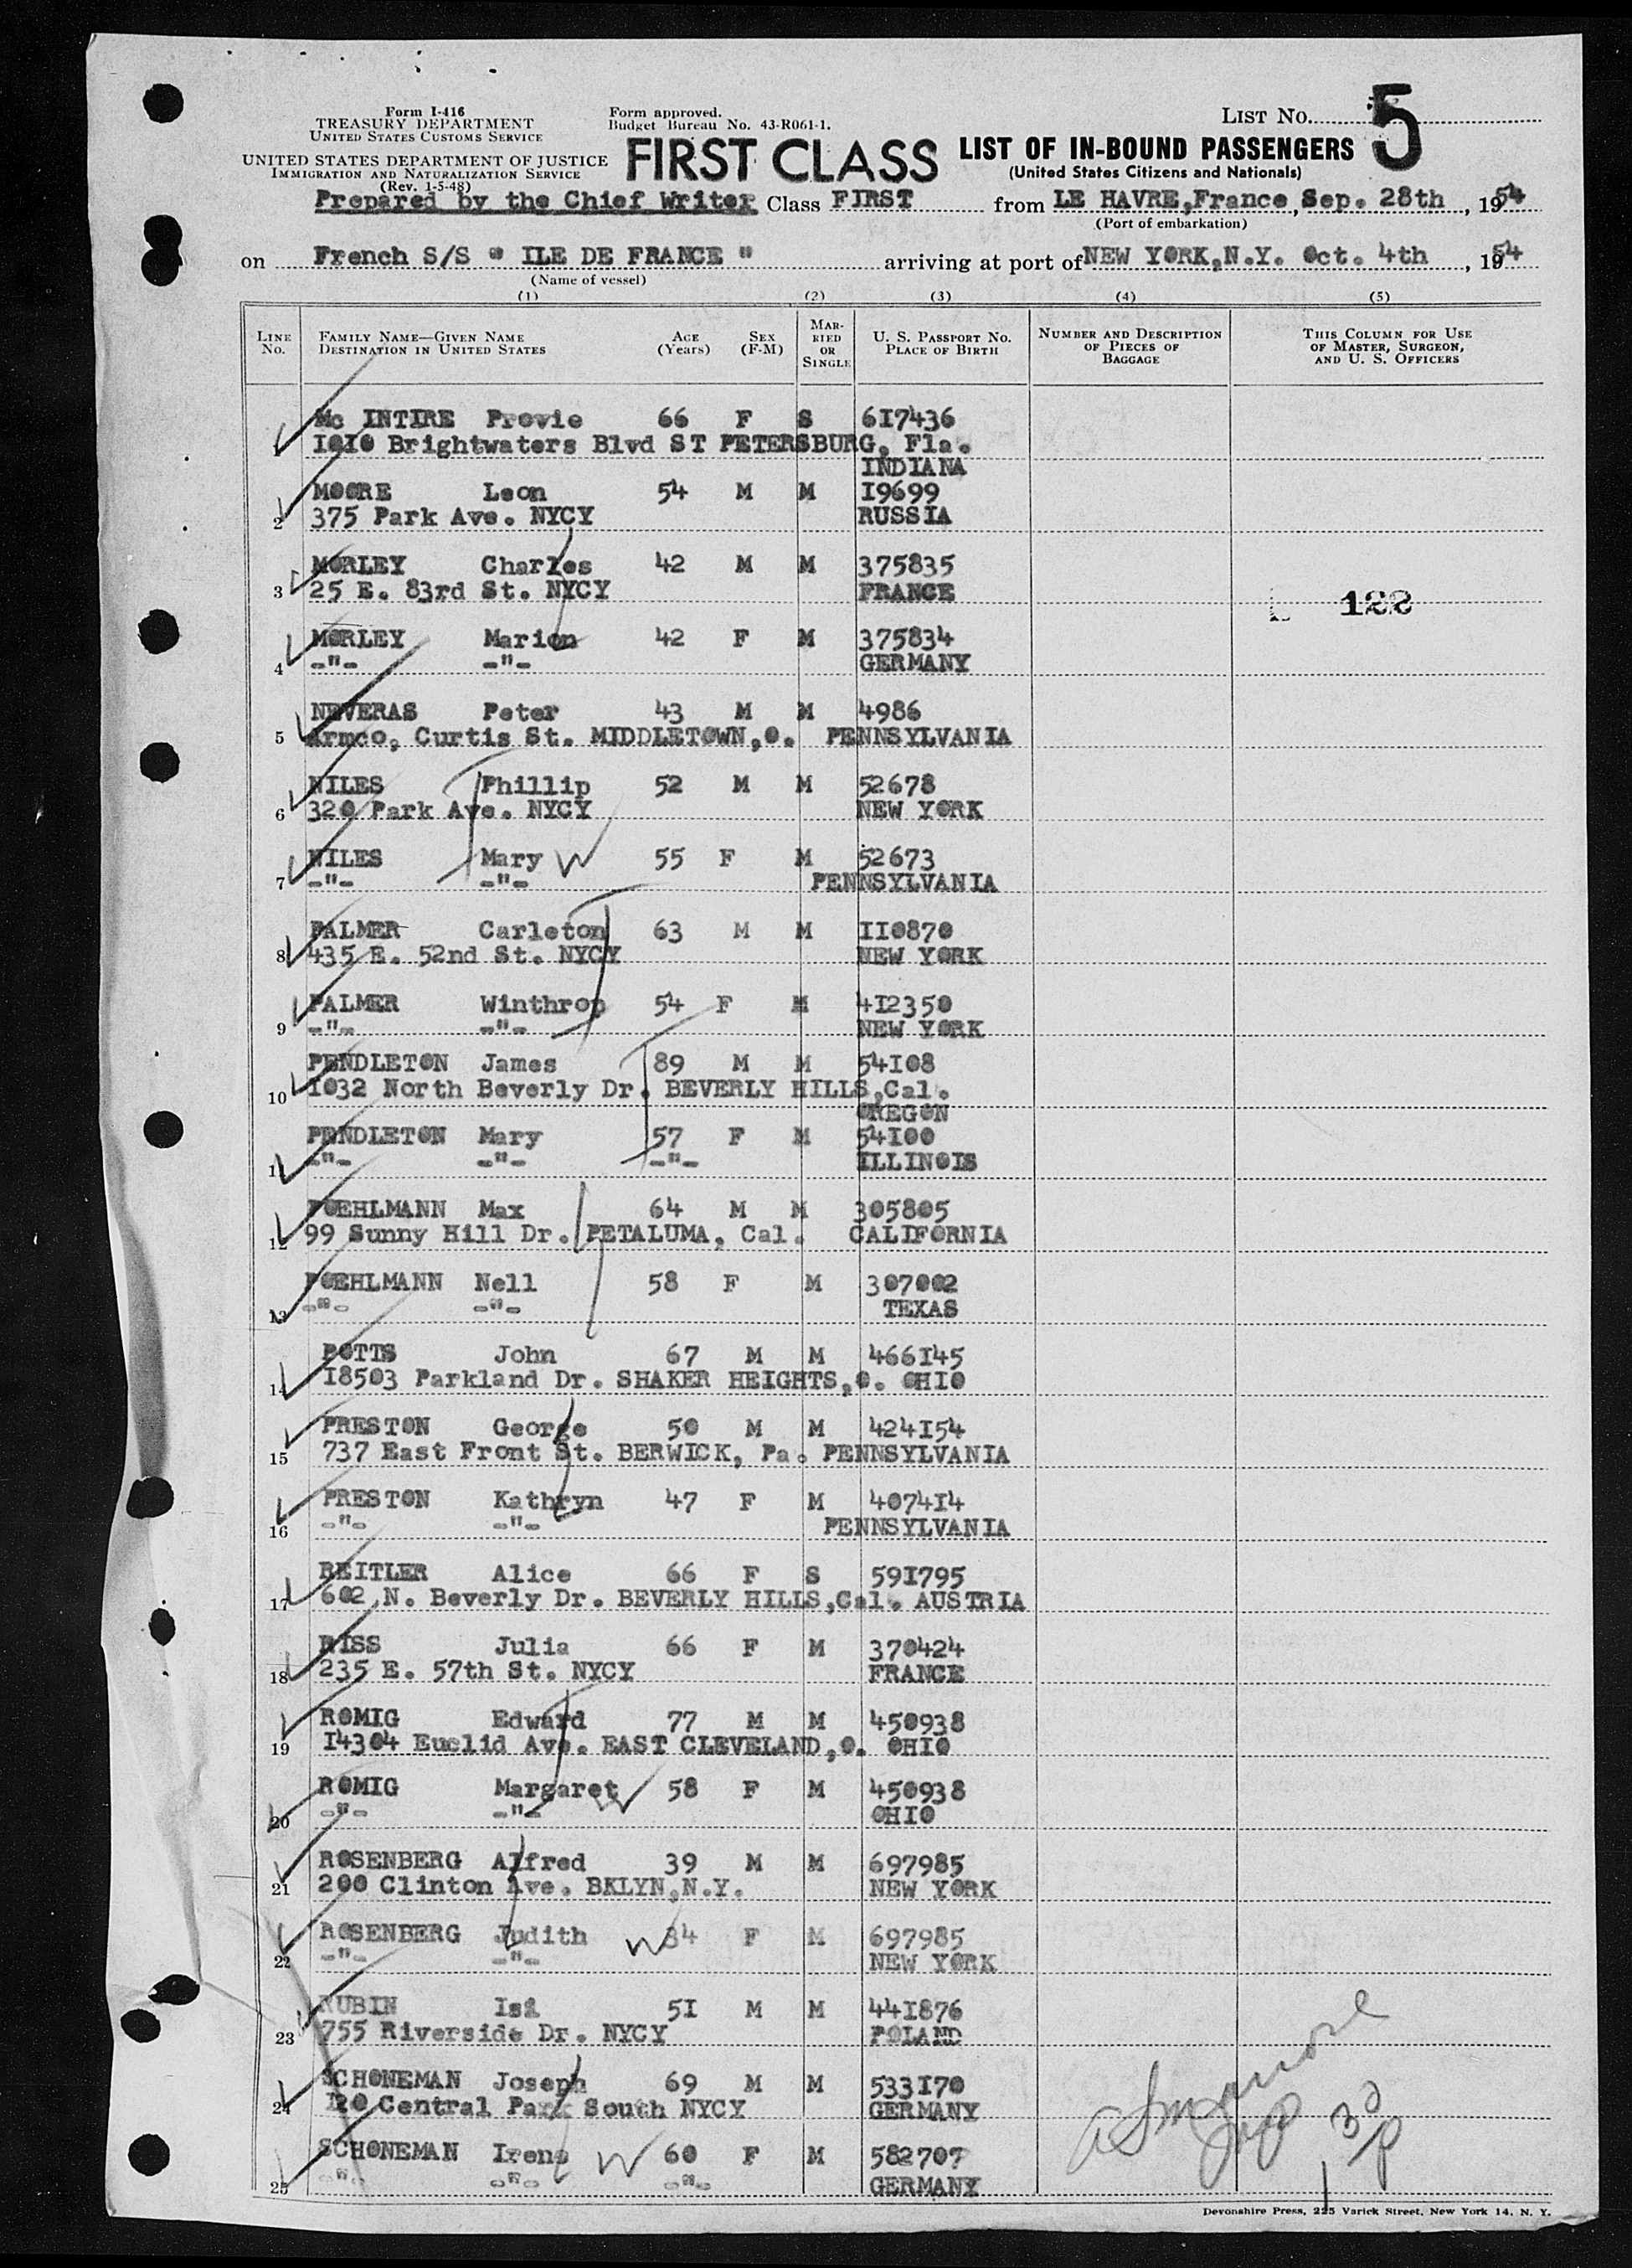 Form I-416
TREASURY DEPARTMENT
UNITED STATES CUSTOMS SERVICE
UNITED STATES DEPARTMENT OF JUSTICE
IMMIGRATION AND NATURALIZATION SERVICE
(Rev. 1-5-48)
Form approved.
Budget Bureau No. 43-R061-1.
LIST No. 5
FIRST CLASS LIST OF IN-BOUND PASSENGERS
(United States Citizens and Nationals)
Prepared by the Chief Writer Class FIRST from LE HAVRE,France, Sep. 28th, 1954
(Port of embarkation)
on French S/S " ILE DE FRANCE " arriving at port of NEW YORK,N.Y. Oct. 4th, 1954
(Name of vessel)
(1) (2) (3) (4) (5)
LINE No. FAMILY NAME—GIVEN NAME DESTINATION IN UNITED STATES AGE (Years) SEX (F-M) MARRIED OR SINGLE U. S. PASSPORT No. PLACE OF BIRTH NUMBER AND DESCRIPTION OF PIECES OF BAGGAGE THIS COLUMN FOR USE OF MASTER, SURGEON, AND U. S. OFFICERS
Mc INTIRE Provie 66 F S 617436
1 1010 Brightwaters Blvd ST PETERSBURG, Fla.
INDIANA
MOORE Leon 54 M M 19699
2 375 Park Ave. NYCY RUSSIA
MORLEY Charles 42 M M 375835
3 25 E. 83rd St. NYCY FRANCE 122
MORLEY Marion 42 F M 375834
4 -"- -"- GERMANY
NEVERAS Peter 43 M M 4986
5 Armco, Curtis St. MIDDLETOWN,O. PENNSYLVANIA
NILES Phillip 52 M M 52678
6 320 Park Ave. NYCY NEW YORK
NILES Mary W 55 F M 52673
7 -"- -"- PENNSYLVANIA
PALMER Carleton 63 M M 110870
8 435 E. 52nd St. NYCY NEW YORK
PALMER Winthrop 54 F M 412350
9 -"- -"- NEW YORK
PENDLETON James 89 M M 54108
10 1032 North Beverly Dr. BEVERLY HILLS,Cal.
OREGON
PENDLETON Mary 57 F M 54100
11 -"- -"- -"- ILLINOIS
POEHLMANN Max 64 M M 305805
12 99 Sunny Hill Dr. PETALUMA, Cal. CALIFORNIA
POEHLMANN Nell 58 F M 307002
13 -"- -"- TEXAS
POTTS John 67 M M 466145
14 18503 Parkland Dr. SHAKER HEIGHTS,O. OHIO
PRESTON George 50 M M 424154
15 737 East Front St. BERWICK, Pa. PENNSYLVANIA
PRESTON Kathryn 47 F M 407414
16 -"- -"- PENNSYLVANIA
REITLER Alice 66 F S 591795
17 602 N. Beverly Dr. BEVERLY HILLS,Cal. AUSTRIA
RISS Julia 66 F M 370424
18 235 E. 57th St. NYCY FRANCE
ROMIG Edward 77 M M 450938
19 14304 Euclid Ave. EAST CLEVELAND,O. OHIO
ROMIG Margaret W 58 F M 450938
20 -"- -"- OHIO
ROSENBERG Alfred 39 M M 697985
21 200 Clinton Ave. BKLYN,N.Y. NEW YORK
ROSENBERG Judith W 34 F M 697985
22 -"- -"- NEW YORK
RUBIN Isi 51 M M 441876
23 755 Riverside Dr. NYCY POLAND
SCHONEMAN Joseph 69 M M 533170
24 120 Central Park South NYCY GERMANY
SCHONEMAN Irene W 60 F M 582707
25 -"- -"- -"- GERMANY
Devonshire Press, 225 Varick Street, New York 14, N. Y.